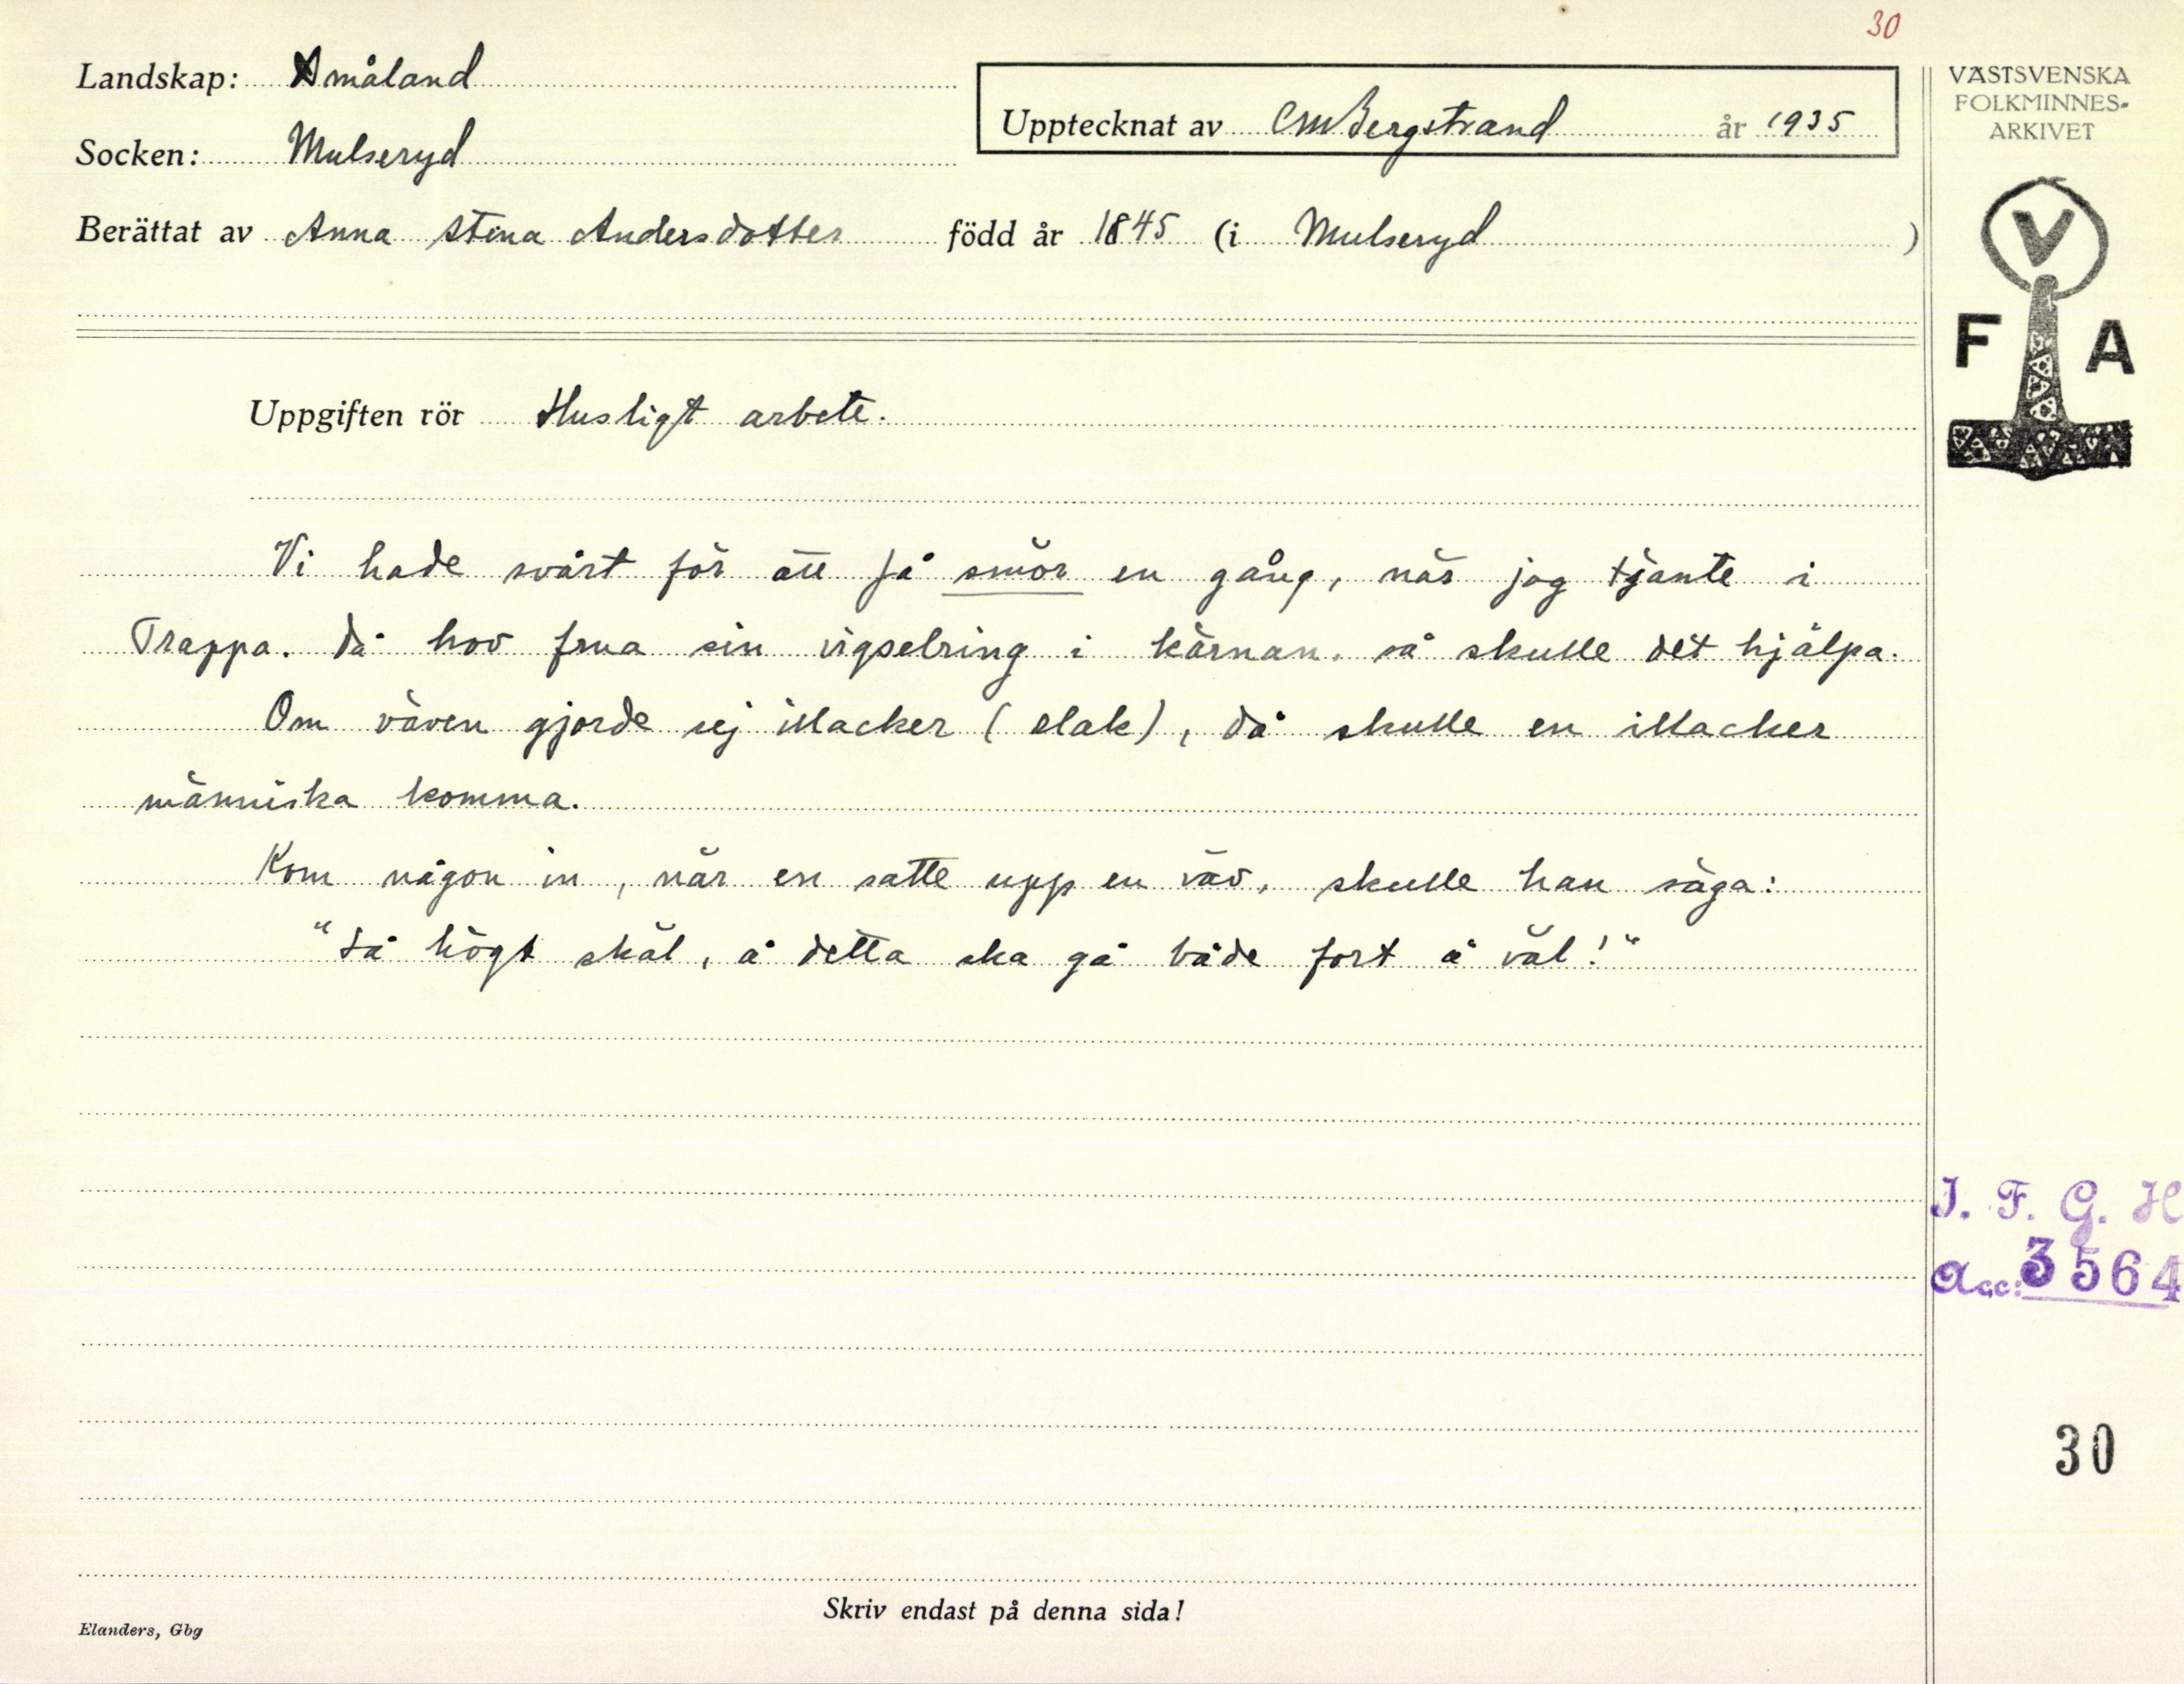 30
Landskap: Småland
Upptecknat av CMBergstrand år 1935
Socken: Mulseryd
Berättat av Anna Stina Andersdotter född år 1845 (i Mulseryd )
VÄSTSVENSKA
FOLKMINNES-
ARKIVET
V
F A
Uppgiften rör Husligt arbete.
Vi hade svårt för att få smör en gång, när jag tjänte i
Trappa. Då hov frua sin vigselring i kärnan. så skulle det hjälpa.
Om väven gjorde sej illacker (elak), då skulle en illacker
människa komma.
Kom någon in, när en satte upp en väv, skulle han säga:
"Så högt skäl, å detta ska gå både fort å väl!"
I. F. G. H
Acc: 3564
30
Skriv endast på denna sida!
Elanders, Gbg